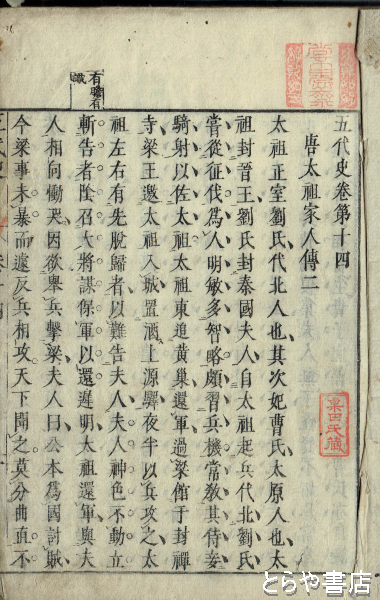 五代史卷第十四
唐太祖家人傳二
太祖正室劉氏代北人也其次妃曹氏太原人也太
祖封晉王劉氏封秦國夫人自太祖起兵代北劉氏
嘗從征伐爲人明敏多智略頗習兵機常敎其侍妾
騎射以佐太祖太祖東追黃巢還軍過梁館于封禪
寺梁王邀太祖入城置酒上源驛夜半以兵攻之太
祖左右有先脫歸者以難告夫人夫人神色不動立
斬告者陰召大將謀保軍以還遲明太祖還軍與夫
人相向慟哭因欲舉兵擊梁夫人曰公本爲國討賊
今梁事未暴而遽反兵相攻天下聞之莫分曲直不
有膽有
識
とらや書店